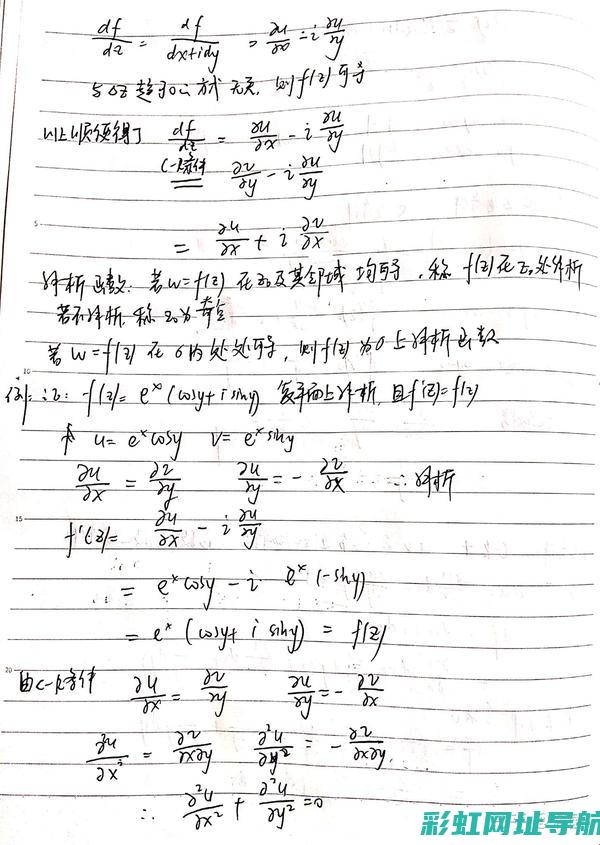 df/dz = df/(dx+idy) = ∂u/∂x - i ∂u/∂y
与Δz趋于0的方式无关,则f(z)可导
以上顺便得了 df/dz = ∂u/∂x - i ∂u/∂y
C-R条件 ∂v/∂y - i ∂u/∂y
5
= ∂u/∂x + i ∂v/∂x
解析函数:若w=f(z) 在z₀及其邻域 均可导,称 f(z)在z₀处解析
若不解析,称z₀为奇点
若w=f(z) 在σ内处处可导,则f(z)为σ上解析函数
10
例: 证: f(z)= eˣ(cosy+isiny) 复平面上解析,且f'(z)=f(z)
u= eˣcosy v= eˣsiny
∂u/∂x = ∂v/∂y ∂u/∂y = - ∂v/∂x ∴解析
15
f'(z)= ∂u/∂x - i ∂u/∂y
= eˣcosy - i eˣ(-siny)
= eˣ(cosy+ i siny) = f(z)
20
由C-R条件 ∂u/∂x = ∂v/∂y ∂u/∂y = - ∂v/∂x
∂²u/∂x² = ∂²v/∂x∂y ∂²u/∂y² = - ∂²v/∂x∂y.
∴ ∂²u/∂x² + ∂²u/∂y² =0
彩虹网址导航